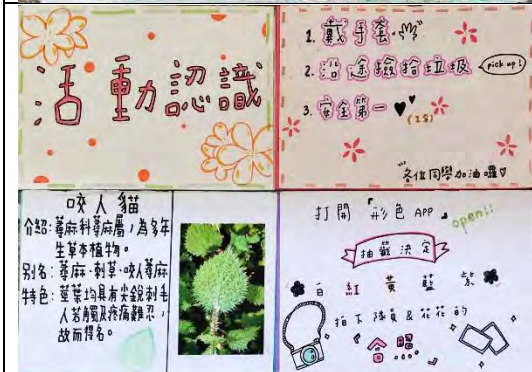 活動認識
1. 戴手套
2. 沿途撿拾垃圾
pick up!
3. 安全第一
各位同學加油囉
咬人貓
介紹：蕁麻科蕁麻屬，為多年
生草本植物。
別名：蕁麻、刺草、咬人蕁麻
特色：莖葉均具有尖銳刺毛
人若觸及疼痛難忍，
故而得名。
打開『形色 APP』
open!!
抽籤決定
白 紅 黃 藍 紫
拍下隊員 & 花花的
『合照』